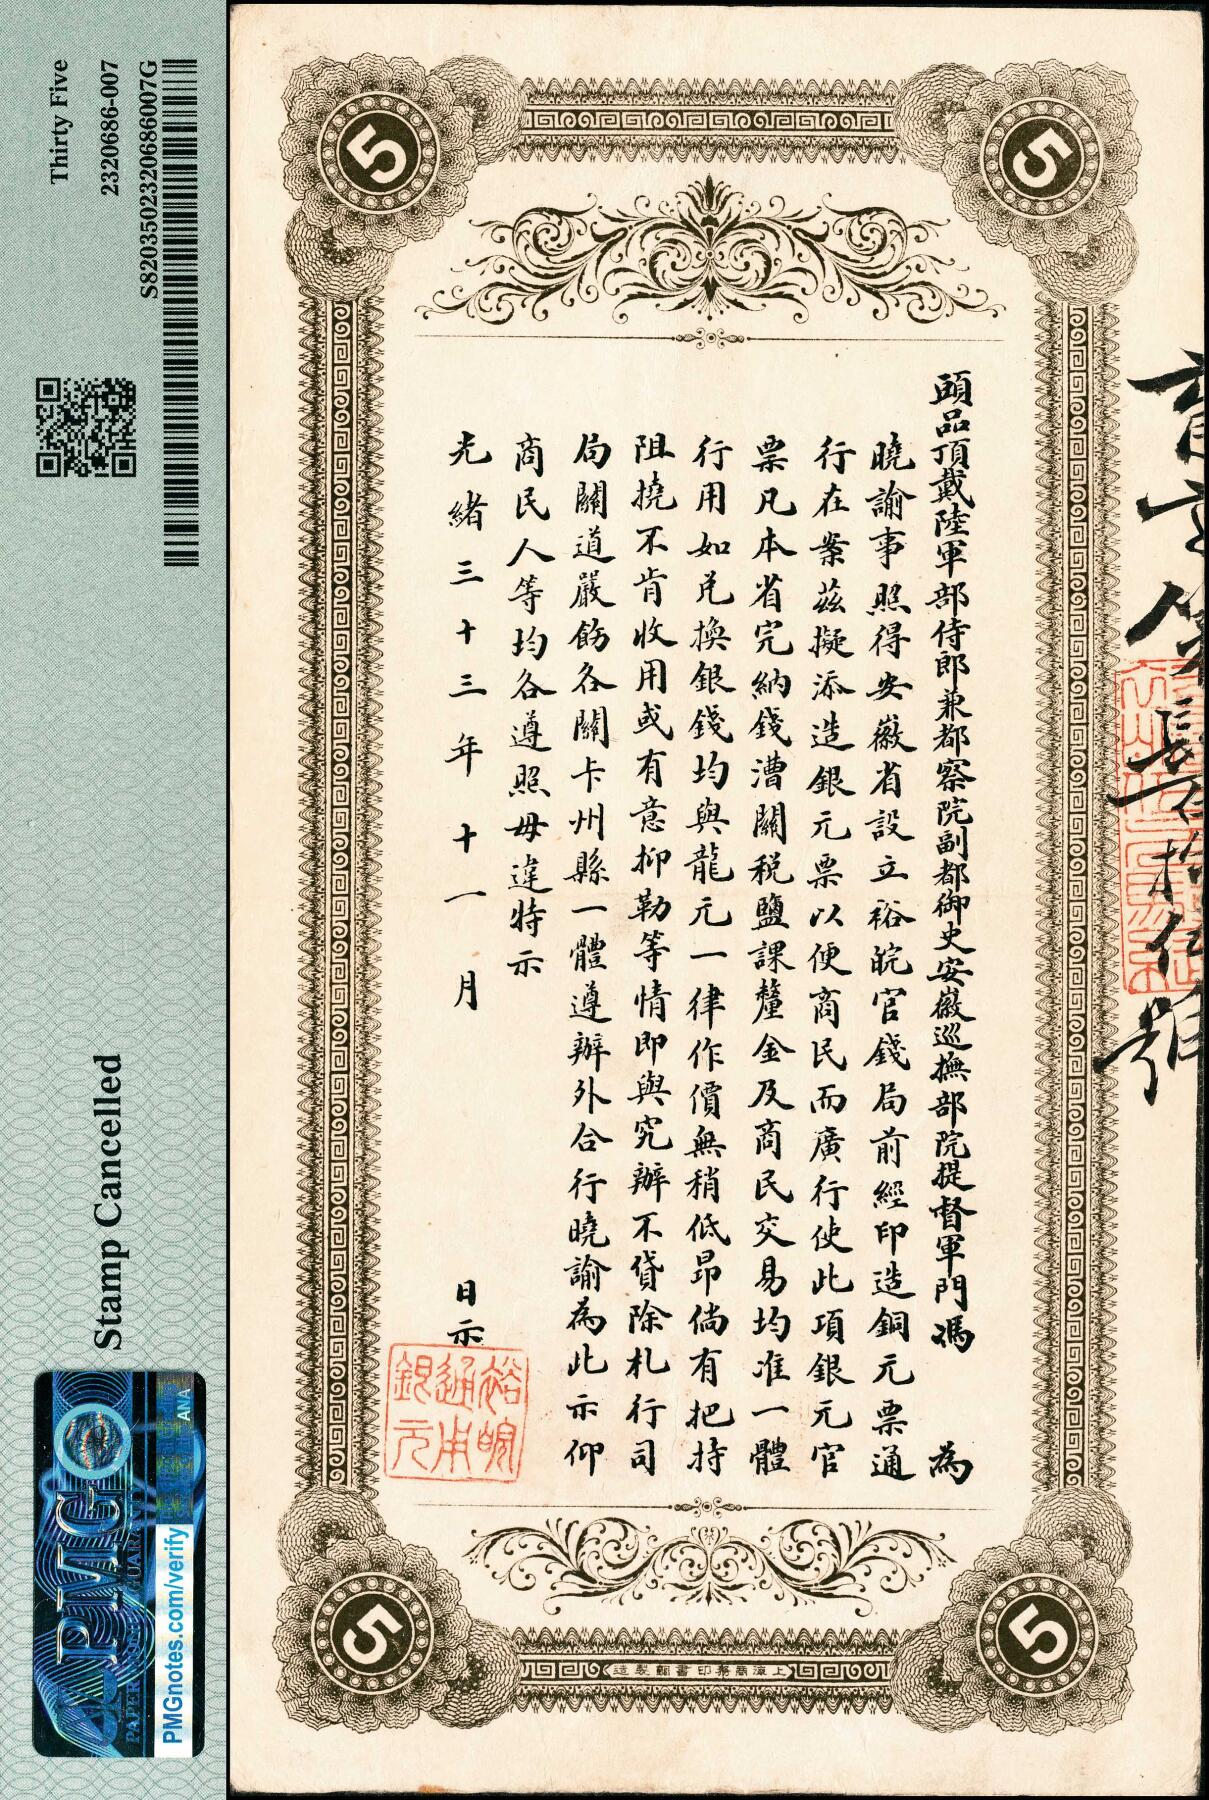 Thirty Five
2320686-007
S82035023206860​07G
Stamp Cancelled
PMG
PMGnotes.com/verify
ANA
5
5
頭品頂戴陸軍部侍郎兼都察院副都御史安徽巡撫部院提督軍門馮 為
曉諭事照得安徽省設立裕皖官錢局前經印造銅元票通
行在案茲擬添造銀元票以便商民而廣行使此項銀元官
票凡本省完納錢漕關稅鹽課釐金及商民交易均准一體
行用如兌換銀錢均與龍元一律作價無稍低昂倘有把持
阻撓不肯收用或有意抑勒等情即與究辦不貸除札行司
局關道嚴飭各關卡州縣一體遵辦外合行曉諭為此示仰
商民人等均各遵照毋違特示
光緒三十三年十一月 日示
裕皖
通用
銀元
5
5
上海商務印書館製造